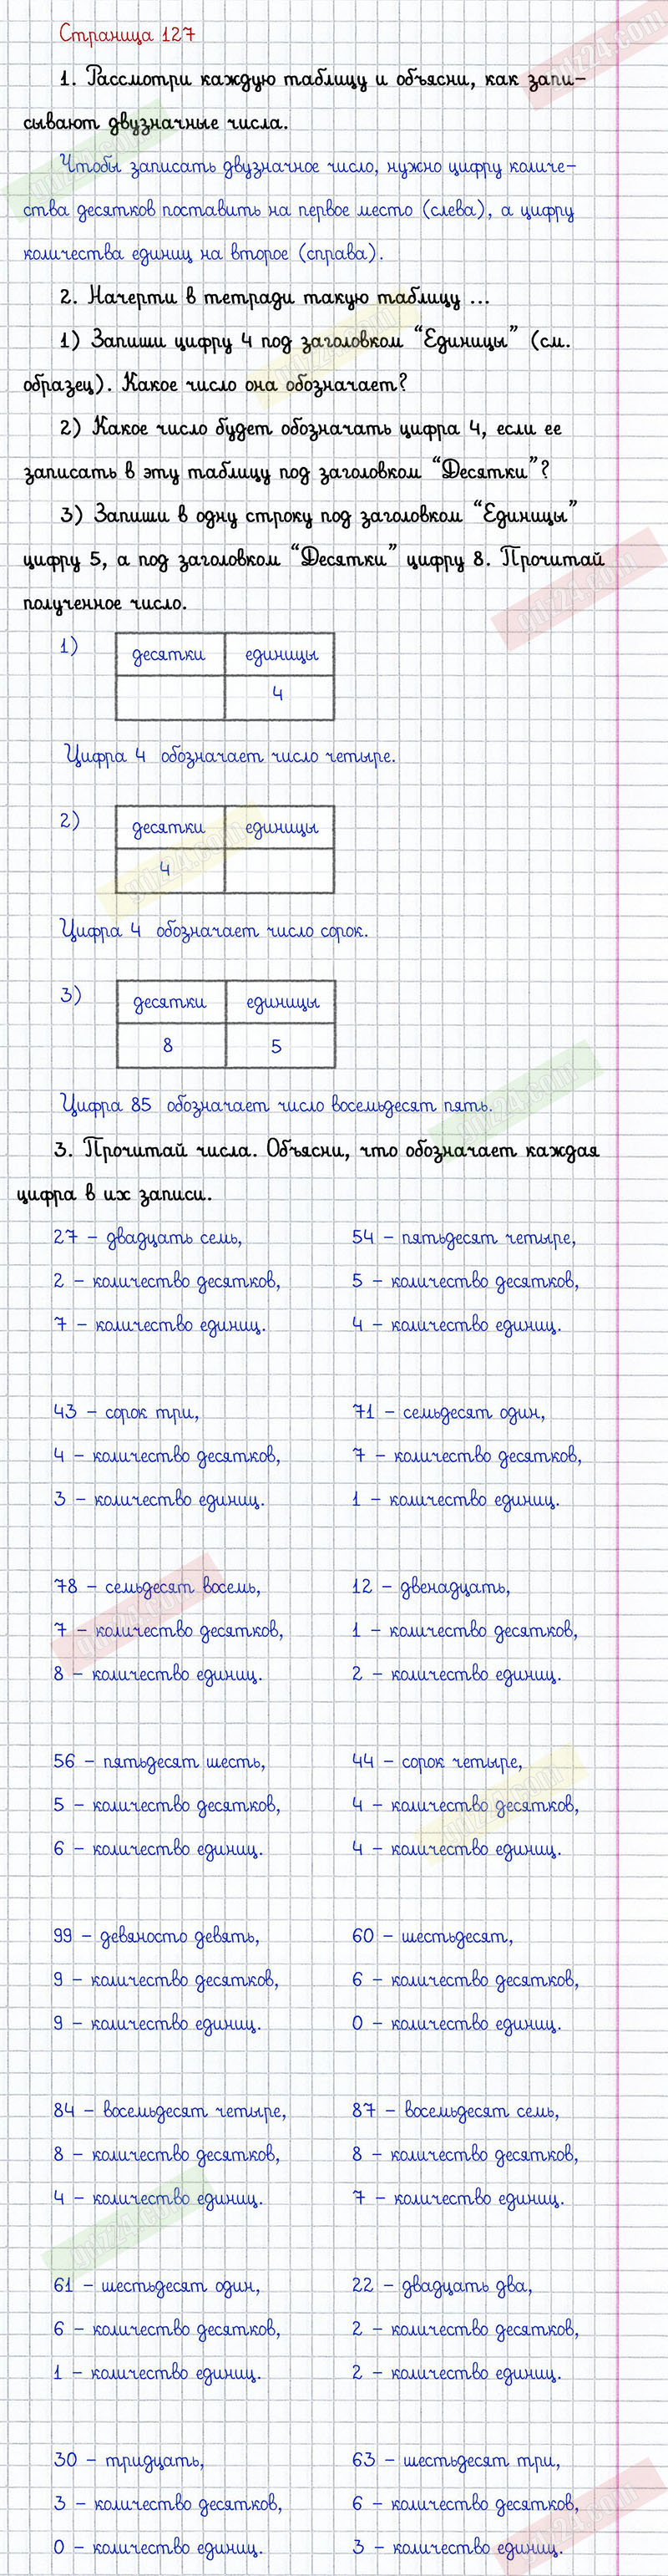 Страница 127
1. Рассмотри каждую таблицу и объясни, как запи-
сывают двузначные числа.
Чтобы записать двузначное число, нужно цифру количе-
ства десятков поставить на первое место (слева), а цифру
количества единиц на второе (справа).
2. Начерти в тетради такую таблицу ...
1) Запиши цифру 4 под заголовком “Единицы” (см.
образец). Какое число она обозначает?
2) Какое число будет обозначать цифра 4, если ее
записать в эту таблицу под заголовком “Десятки”?
3) Запиши в одну строку под заголовком “Единицы”
цифру 5, а под заголовком “Десятки” цифру 8. Прочитай
полученное число.
1) десятки единицы
4
Цифра 4 обозначает число четыре.
2) десятки единицы
4
Цифра 4 обозначает число сорок.
3) десятки единицы
8 5
Цифра 85 обозначает число восемьдесят пять.
3. Прочитай числа. Объясни, что обозначает каждая
цифра в их записи.
27 – двадцать семь, 54 – пятьдесят четыре,
2 – количество десятков, 5 – количество десятков,
7 – количество единиц. 4 – количество единиц.
43 – сорок три, 71 – семьдесят один,
4 – количество десятков, 7 – количество десятков,
3 – количество единиц. 1 – количество единиц.
78 – семьдесят восемь, 12 – двенадцать,
7 – количество десятков, 1 – количество десятков,
8 – количество единиц. 2 – количество единиц.
56 – пятьдесят шесть, 44 – сорок четыре,
5 – количество десятков, 4 – количество десятков,
6 – количество единиц. 4 – количество единиц.
99 – девяносто девять, 60 – шестьдесят,
9 – количество десятков, 6 – количество десятков,
9 – количество единиц. 0 – количество единиц.
84 – восемьдесят четыре, 87 – восемьдесят семь,
8 – количество десятков, 8 – количество десятков,
4 – количество единиц. 7 – количество единиц.
61 – шестьдесят один, 22 – двадцать два,
6 – количество десятков, 2 – количество десятков,
1 – количество единиц. 2 – количество единиц.
30 – тридцать, 63 – шестьдесят три,
3 – количество десятков, 6 – количество десятков,
0 – количество единиц. 3 – количество единиц.